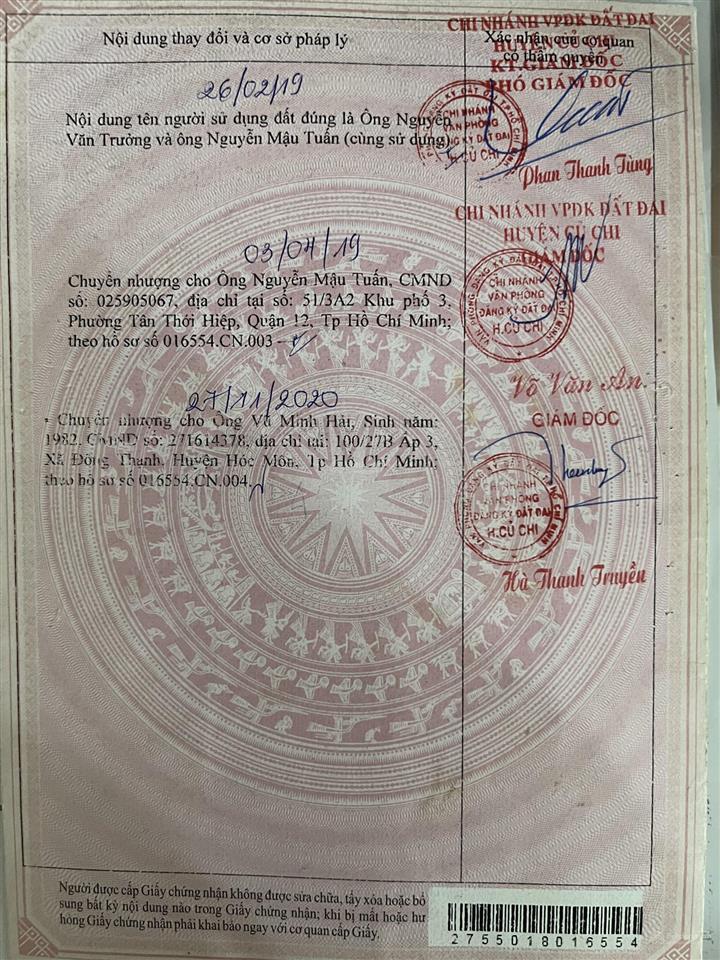 Nội dung thay đổi và cơ sở pháp lý
Xác nhận của cơ quan
có thẩm quyền
CHI NHÁNH VPĐK ĐẤT ĐAI
HUYỆN CỦ CHI
KT.GIÁM ĐỐC
PHÓ GIÁM ĐỐC
26/02/19
Nội dung tên người sử dụng đất đúng là Ông Nguyễn
Văn Trưởng và ông Nguyễn Mậu Tuấn (cùng sử dụng)
CHI NHÁNH
VĂN PHÒNG
ĐĂNG KÝ ĐẤT ĐAI
H.CỦ CHI
Phan Thanh Tùng
CHI NHÁNH VPĐK ĐẤT ĐAI
HUYỆN CỦ CHI
GIÁM ĐỐC
03/04/19
Chuyển nhượng cho Ông Nguyễn Mậu Tuấn, CMND
số: 025905067, địa chỉ tại số: 51/3A2 Khu phố 3,
Phường Tân Thới Hiệp, Quận 12, Tp Hồ Chí Minh;
theo hồ sơ số 016554.CN.003
CHI NHÁNH
VĂN PHÒNG
ĐĂNG KÝ ĐẤT ĐAI
H.CỦ CHI
Võ Văn An
27/11/2020
- Chuyển nhượng cho Ông Vũ Minh Hải, Sinh năm:
1982, CMND số: 271614378, địa chỉ tại: 100/27B Ấp 3,
Xã Đông Thạnh, Huyện Hóc Môn, Tp Hồ Chí Minh;
theo hồ sơ số 016554.CN.004
GIÁM ĐỐC
CHI NHÁNH
VĂN PHÒNG
ĐĂNG KÝ ĐẤT ĐAI
H.CỦ CHI
Hà Thanh Truyền
Người được cấp Giấy chứng nhận không được sửa chữa, tẩy xóa hoặc bổ
sung bất kỳ nội dung nào trong Giấy chứng nhận; khi bị mất hoặc hư
hỏng Giấy chứng nhận phải khai báo ngay với cơ quan cấp Giấy.
2755018016554